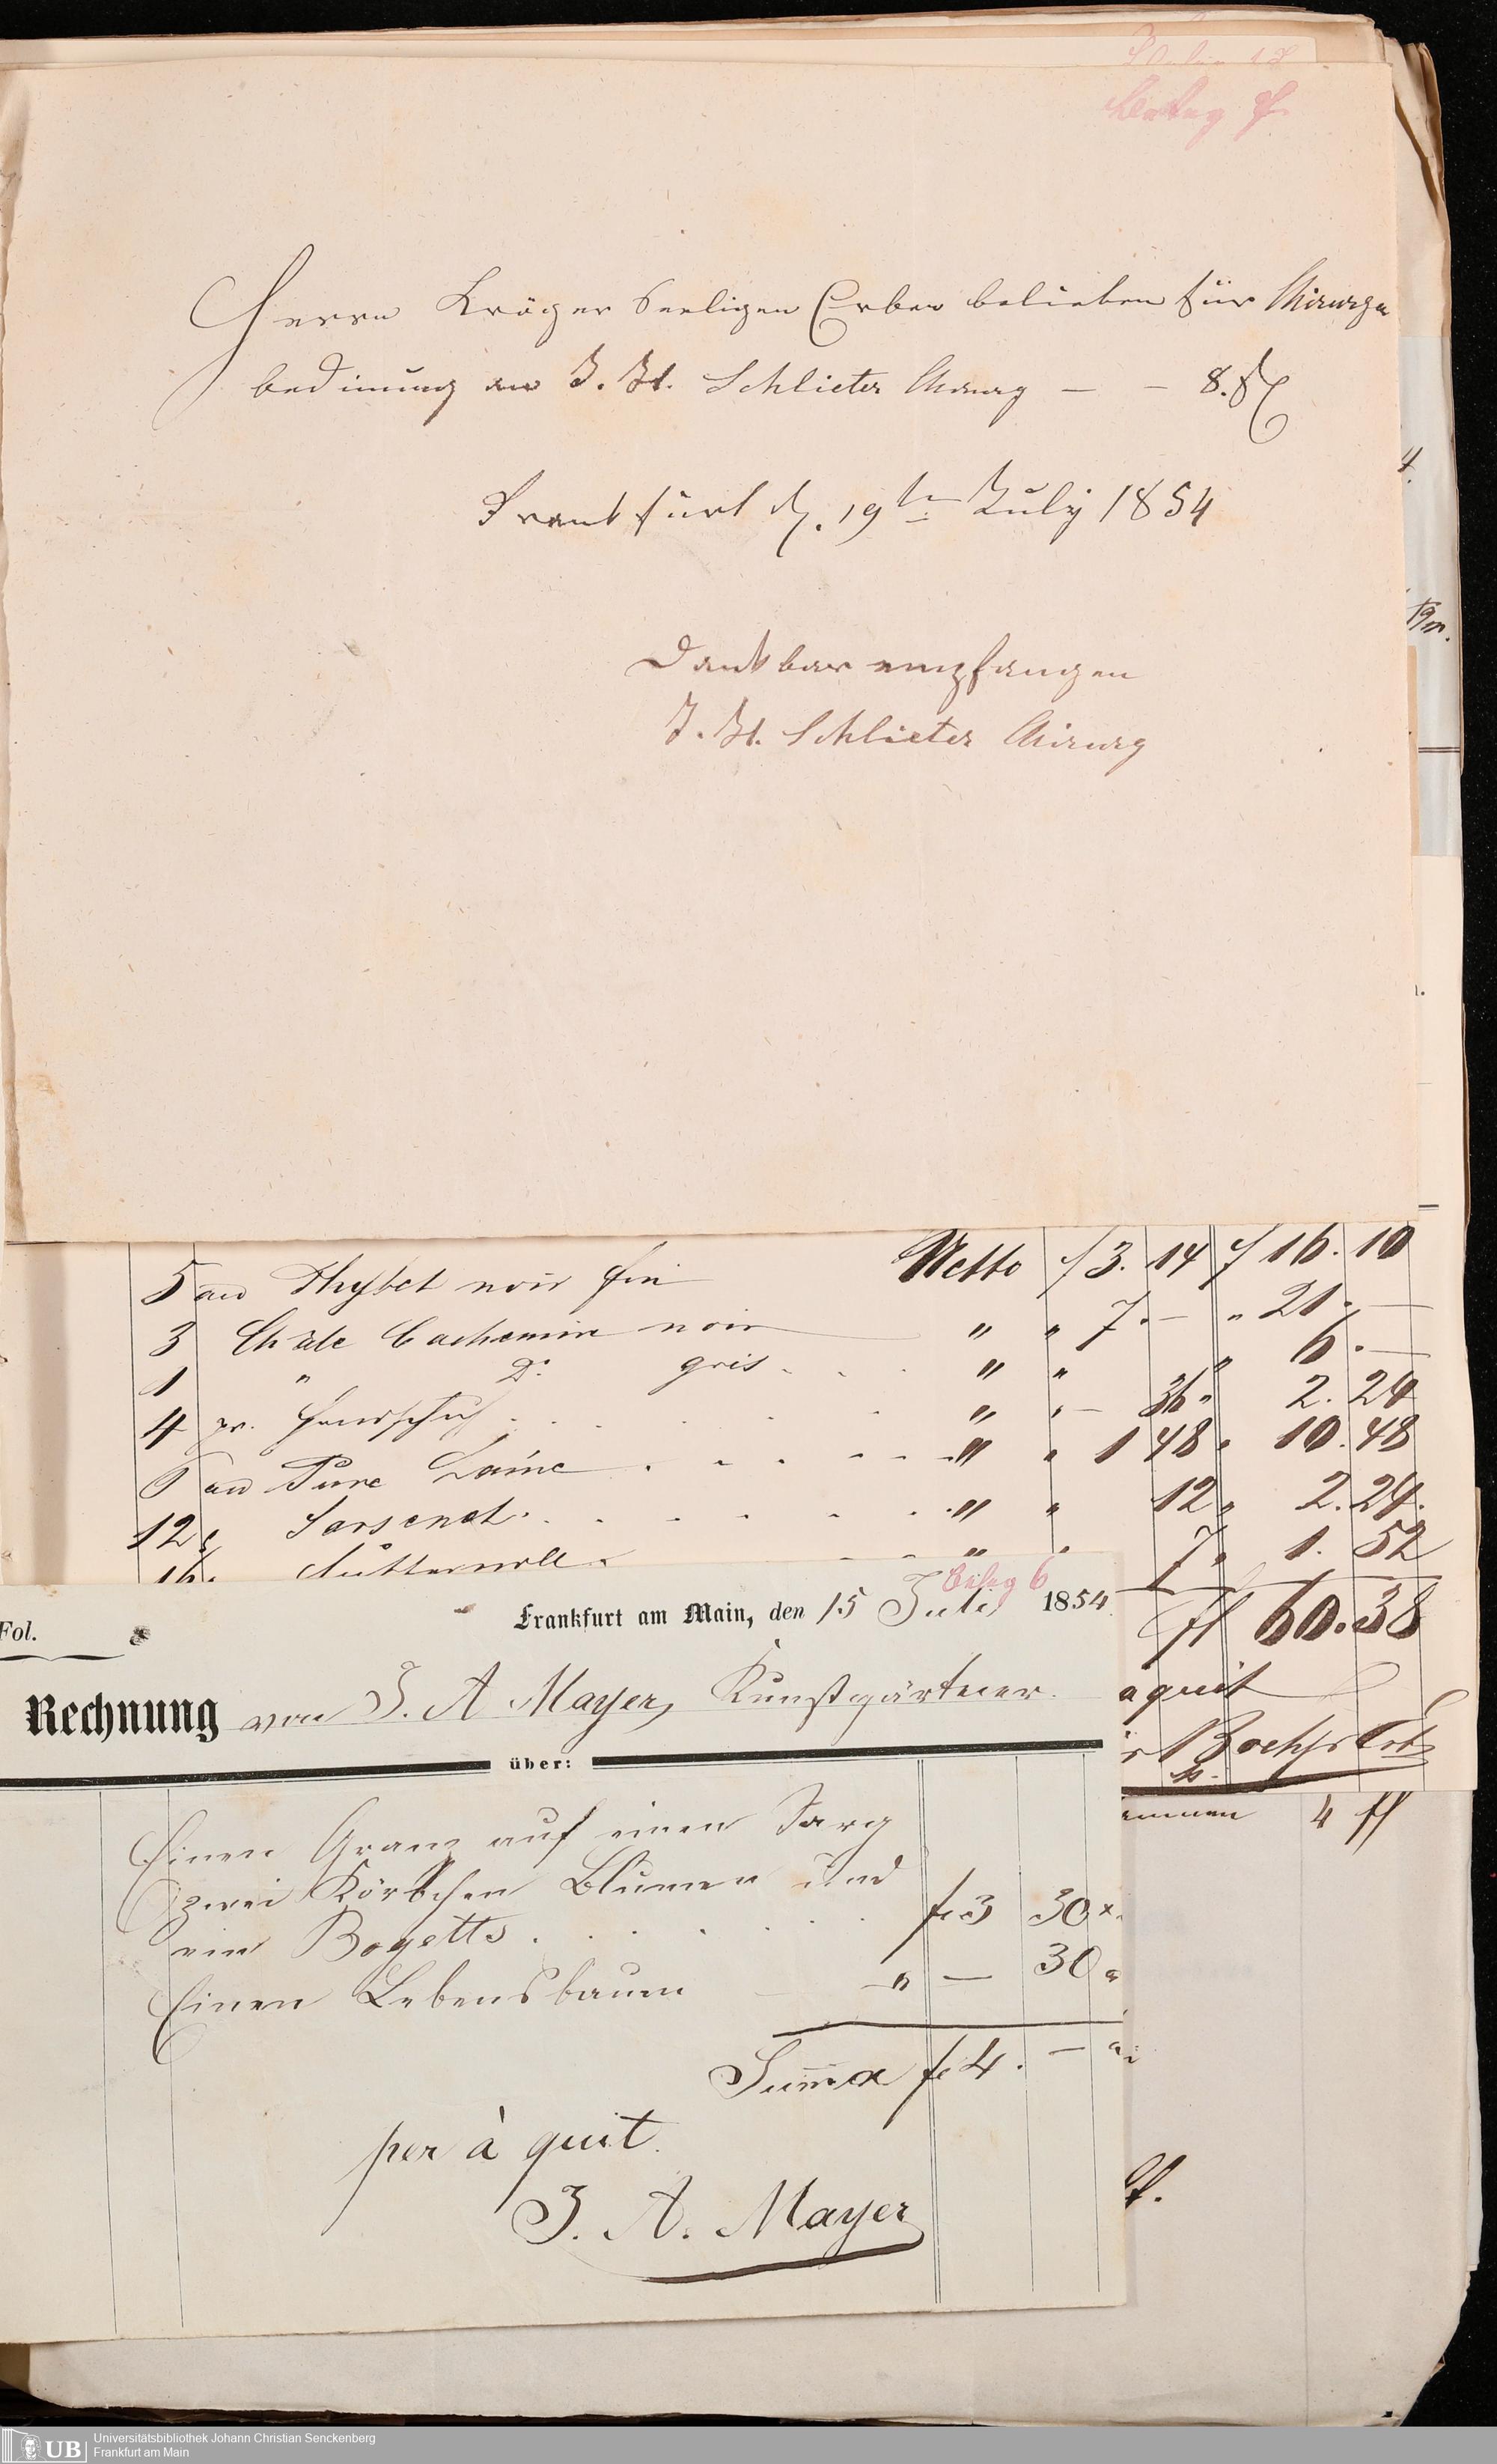 Beleg 7.
Herrn Kröger Seeligen Erben belieben für Chirurgen
bedinung an J. H. Schlieter Chirurg — — 8. fl
Frankfurt d. 19ten July 1854
Dankbar empfangen
J. H. Schlieter Chirurg
5 au Thybet noir fin Netto f 3. 14 f 16. 10
3 Châle Cachemire noir " " 7. — " 21. —
1 " Do. gris . . . " " " 6. —
4 pr. Handschuh . . . . . " " — 36 " 2. 24
6 au Pure Laine . . . . . " " 1 48 " 10. 48
12 " Sarsenet . . . . . . " " 12 " 2. 24.
16 " Futterwoll " " 7 " 1. 52
fl 60. 38
aquit
Beleg 6
Fol.
Frankfurt am Main, den 15 Juli 1854.
Rechnung von J. A Mayer, Kunstgärtner.
über:
Einen Cranz auf einen Sarg
zwei Körbchen Blumen und
ein Bogetts . . . . . . f. 3 30 x.
Einen Lebensbaum — " — 30 "
Summa f. 4. — "
per à quit.
J. A. Mayer
4 fl
UB
Universitätsbibliothek Johann Christian Senckenberg
Frankfurt am Main